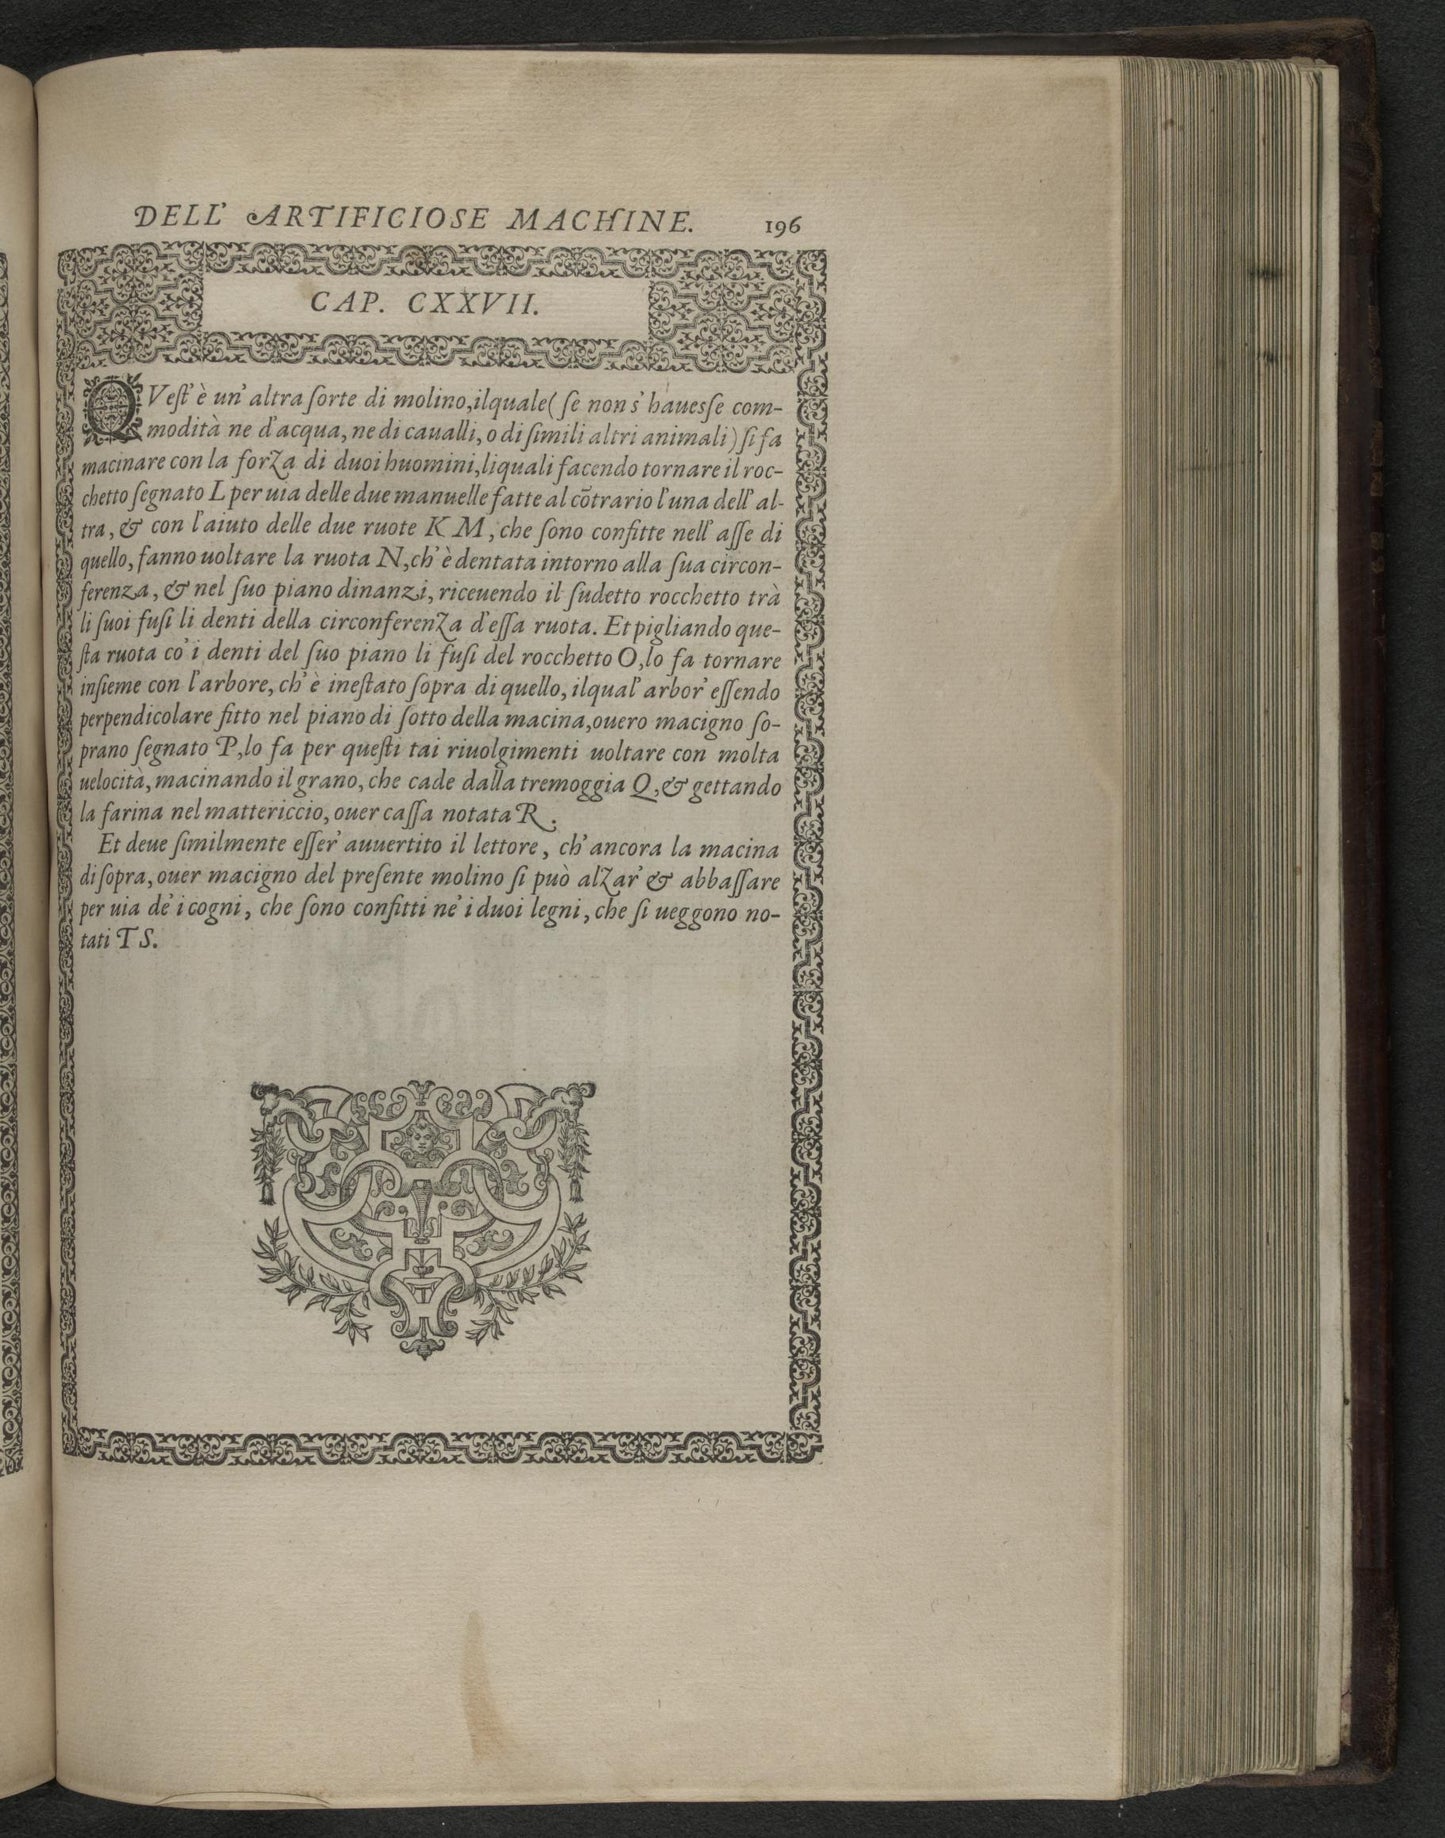 DELL' ARTIFICIOSE MACHINE. 196
CAP. CXXVII.
QVest' è un' altra sorte di molino, ilquale (se non s' hauesse com-
modità ne d'acqua, ne di caualli, o di simili altri animali) si fa
macinare con la forza di duoi huomini, liquali facendo tornare il roc-
chetto segnato L per uia delle due manuelle fatte al cõtrario l'una dell' al-
tra, & con l'aiuto delle due ruote K M, che sono confitte nell' asse di
quello, fanno uoltare la ruota N, ch' è dentata intorno alla sua circon-
ferenza, & nel suo piano dinanzi, riceuendo il sudetto rocchetto trà
li suoi fusi li denti della circonferenza d'essa ruota. Et pigliando que-
sta ruota co' i denti del suo piano li fusi del rocchetto O, lo fa tornare
insieme con l'arbore, ch' è inestato sopra di quello, ilqual' arbor' essendo
perpendicolare fitto nel piano di sotto della macina, ouero macigno so-
prano segnato P, lo fa per questi tai riuolgimenti uoltare con molta
uelocità, macinando il grano, che cade dalla tremoggia Q, & gettando
la farina nel mattericcio, ouer cassa notata R.
Et deue similmente esser' auuertito il lettore, ch' ancora la macina
di sopra, ouer macigno del presente molino si può alzar' & abbassare
per uia de' i cogni, che sono confitti ne' i duoi legni, che si ueggono no-
tati T S.